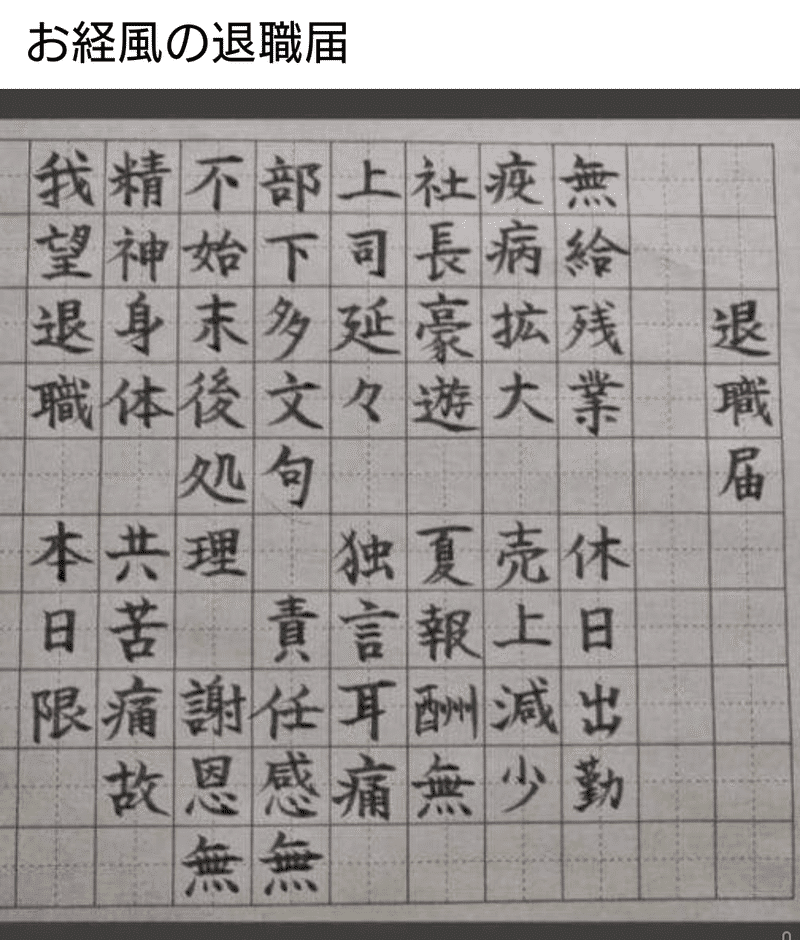 お経風の退職届
退職届
無給残業 休日出勤
疫病拡大 売上減少
社長豪遊 夏報酬無
上司延々 独言耳痛
部下多文句 責任感無
不始末後処理 謝恩無
精神身体 共苦痛故
我望退職 本日限